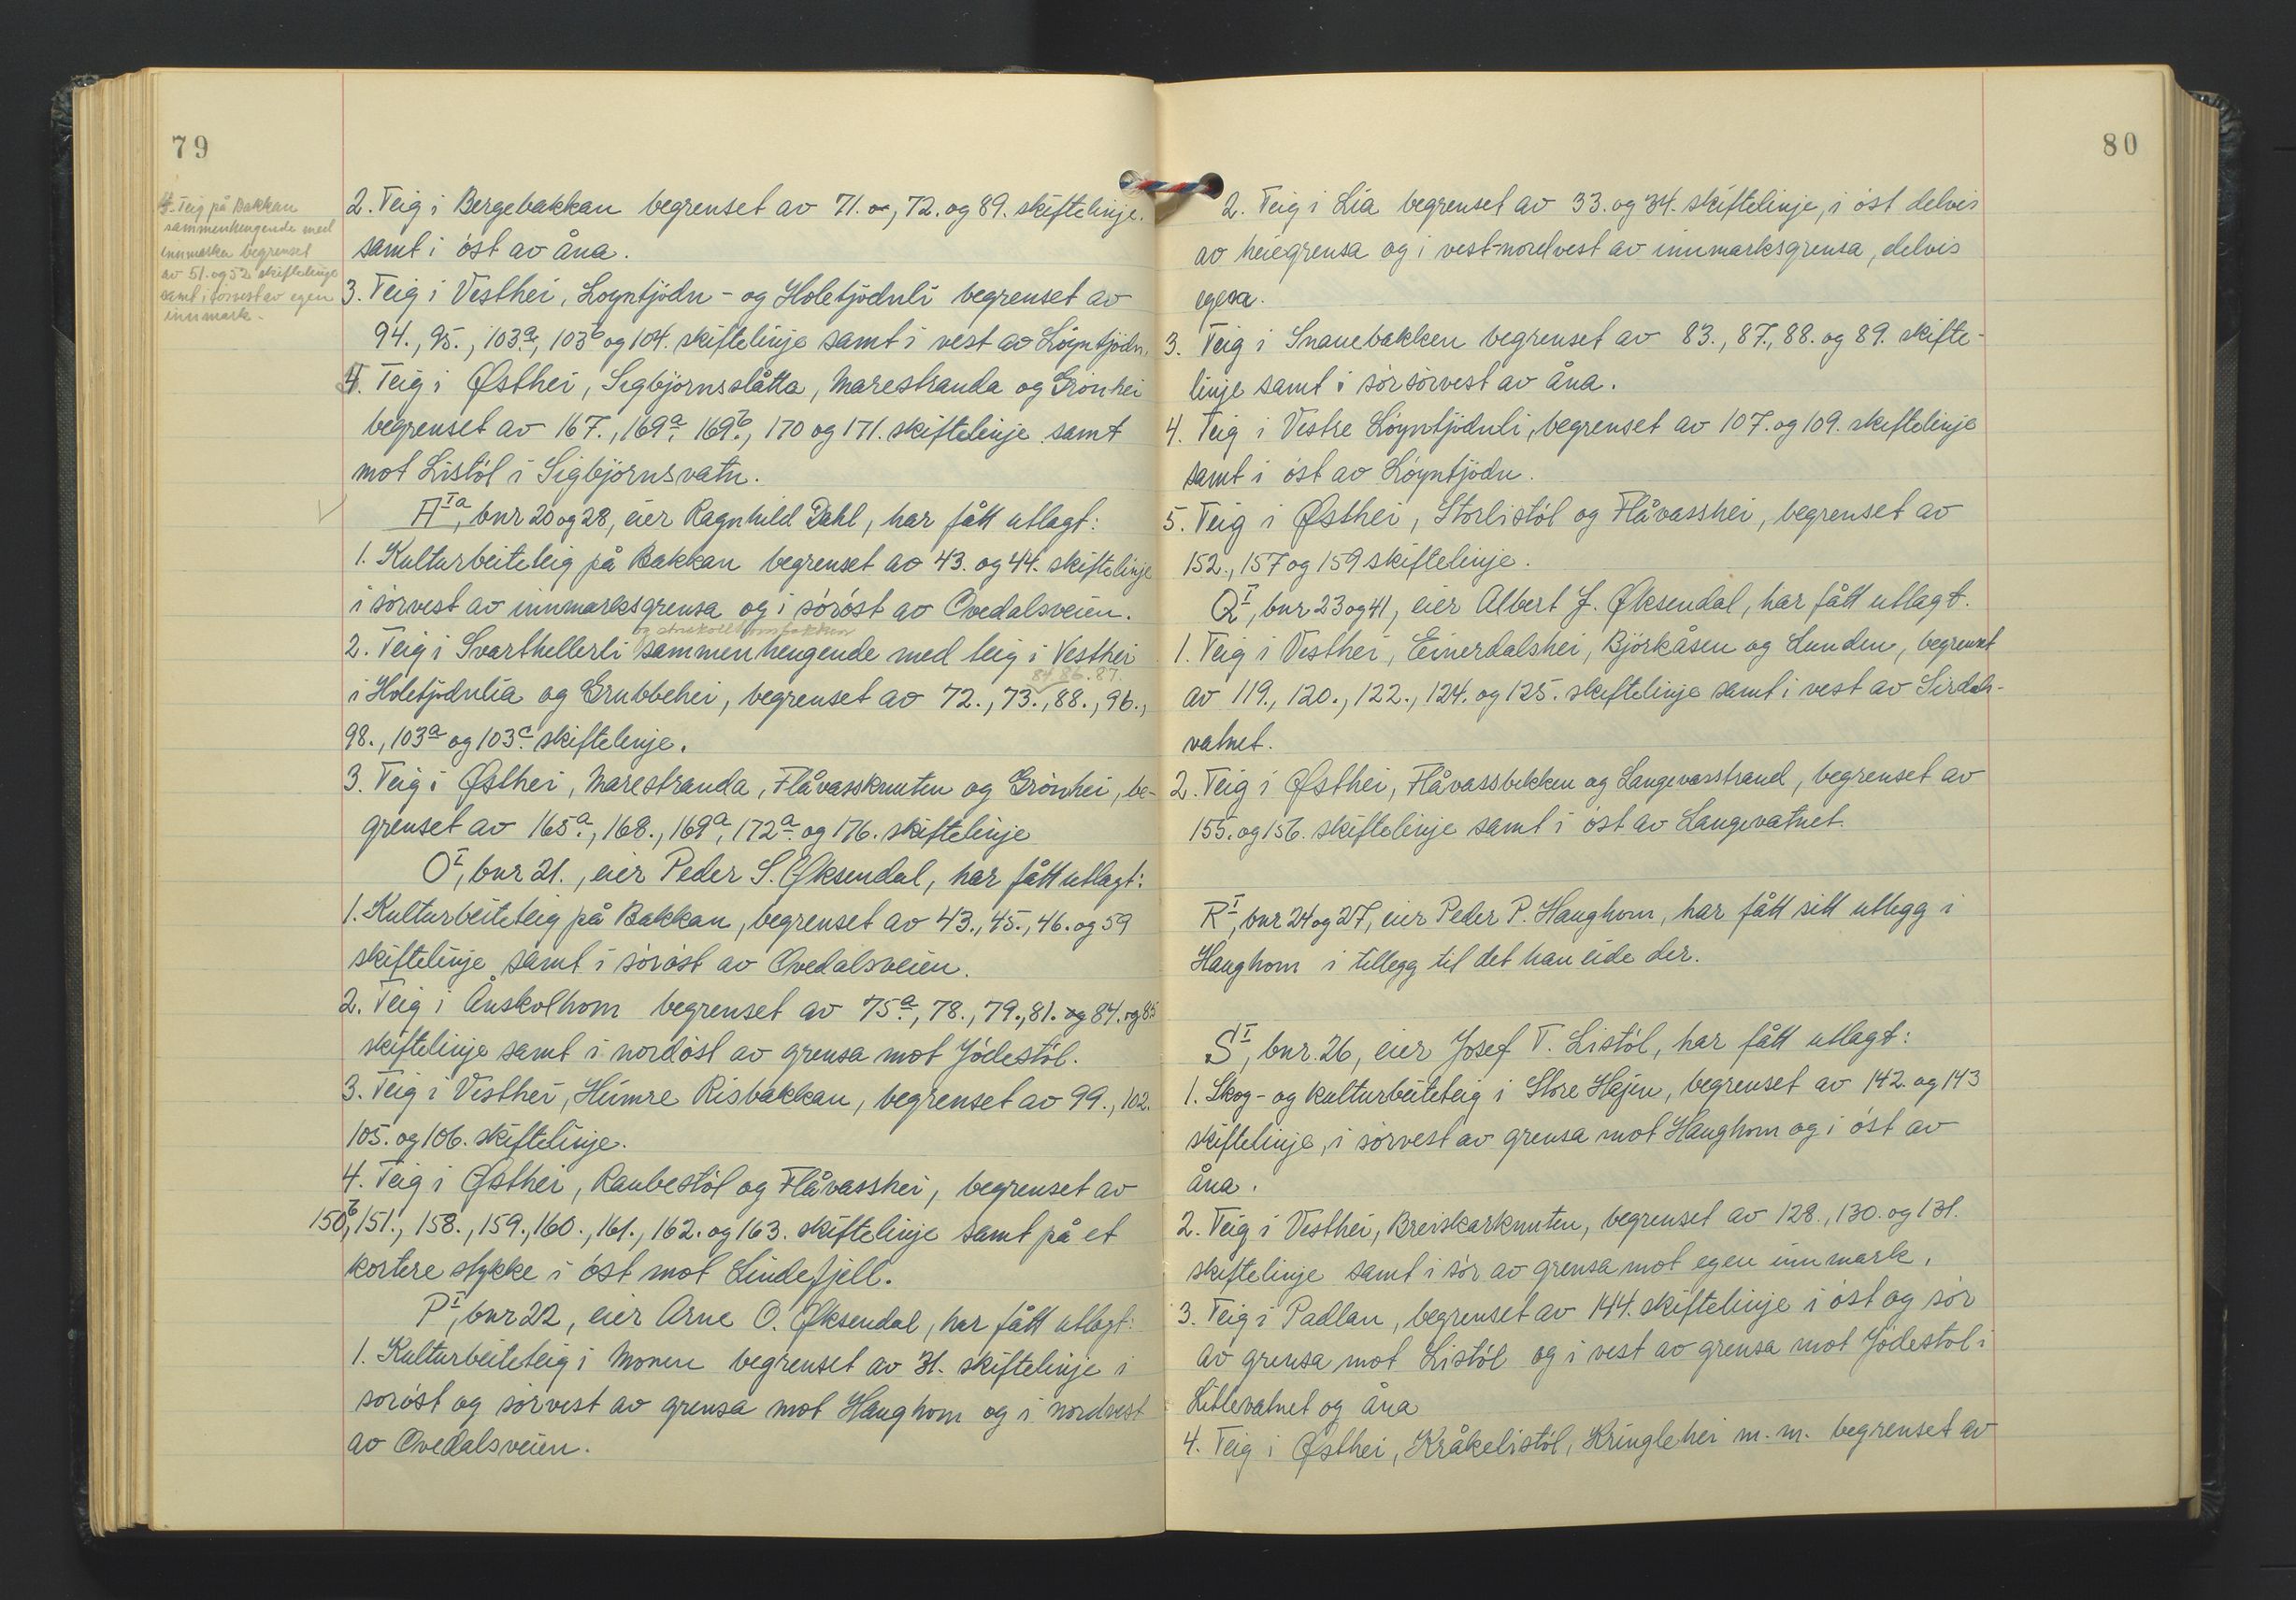 79
4. Teig på Bakkan
sammenhengende med
innmarka begrenset
av 51. og 52 skiftelinje
samt i sørvest av egen
innmark.
2. Teig i Bergebakkan begrenset av 71. og, 72. og 89. skiftelinje.
samt i øst av åna.
3. Teig i Vesthei, Løyntjødn- og Holetjødnli begrenset av
94., 95., 103a., 103b og 104. skiftelinje samt i vest av Løyntjødn.
4. Teig i Østhei, Sigbjørnsslåtta, Marestranda og Grønhei
begrenset av 167., 169a., 169b., 170 og 171. skiftelinje samt
mot Listøl i Sigbjørnsvatn.
A Ia, bnr 20 og 28, eier Ragnhild Dahl, har fått utlagt:
1. Kulturbeiteteig på Bakkan begrenset av 43. og 44. skiftelinje
i sørvest av innmarksgrensa og i sørøst av Ovedalsveien.
2. Teig i Svarthellerli sammenhengende med teig i Vesthei
84. 86. 87.
i Holetjødnlia og Grubbehei, begrenset av 72., 73., 88., 96.,
98., 103a og 103c. skiftelinje.
3. Teig i Østhei, Marestranda, Flåvassknuten og Grønhei, be-
grenset av 165a., 168., 169a, 172a. og 176. skiftelinje
O I, bnr 21., eier Peder S. Øksendal, har fått utlagt:
1. Kulturbeiteteig på Bakkan, begrenset av 43., 45., 46. og 59
skiftelinje samt i sørøst av Ovedalsveien.
2. Teig i Ånskolhom begrenset av 75a., 78., 79., 81. og 84. og 85
skiftelinje samt i nordøst av grensa mot Jødestøl.
3. Teig i Vesthei, Humre Risbakkan, begrenset av 99., 102.
105. og 106. skiftelinje.
4. Teig i Østhei, Raubestøl og Flåvasshei, begrenset av
150b, 151., 158., 159., 160., 161., 162. og 163. skiftelinje samt på et
kortere stykke i øst mot Lindefjell.
P I, bnr 22, eier Arne O. Øksendal, har fått utlagt:
1. Kulturbeiteteig i Monen begrenset av 31. skiftelinje i
sørøst og sørvest av grensa mot Haughom og i nordvest
av Ovedalsveien.
80
2. Teig i Lia begrenset av 33. og 34. skiftelinje, i øst delvis
av heiegrensa og i vest-nordvest av innmarksgrensa, delvis
egen.
3. Teig i Snauebakken begrenset av 83., 87., 88. og 89. skifte-
linje samt i sørsørvest av åna.
4. Teig i Vestre Løyntjødnli, begrenset av 107. og 109. skiftelinje
samt i øst av Løyntjødn.
5. Teig i Østhei, Storlistøl og Flåvasshei, begrenset av
152., 157 og 159 skiftelinje.
Q I, bnr 23 og 41, eier Albert J. Øksendal, har fått utlagt.
1. Teig i Vesthei, Einerdalshei, Bjørkåsen og Lunden, begrenset
av 119., 120., 122., 124. og 125. skiftelinje samt i vest av Sirdals-
vatnet.
2. Teig i Østhei, Flåvassbekken og Langevasstrand, begrenset av
155. og 156. skiftelinje samt i øst av Langevatnet.
R I, bnr 24 og 27, eier Peder P. Haughom, har fått sitt utlegg i
Haughom i tillegg til det han eide der.
S I, bnr. 26, eier Josef T. Listøl, har fått utlagt:
1. Skog- og kulturbeiteteig i Store Hajen, begrenset av 142. og 143
skiftelinje, i sørvest av grensa mot Haughom og i øst av
åna.
2. Teig i Vesthei, Breiskarknuten, begrenset av 128., 130. og 131.
skiftelinje samt i sør av grensa mot egen innmark.
3. Teig i Padlan, begrenset av 144. skiftelinje i øst og sør
av grensa mot Listøl og i vest av grensa mot Jødestøl i
Litlevatnet og åna
4. Teig i Østhei, Kråkelistøl, Kringlehei m.m. begrenset av